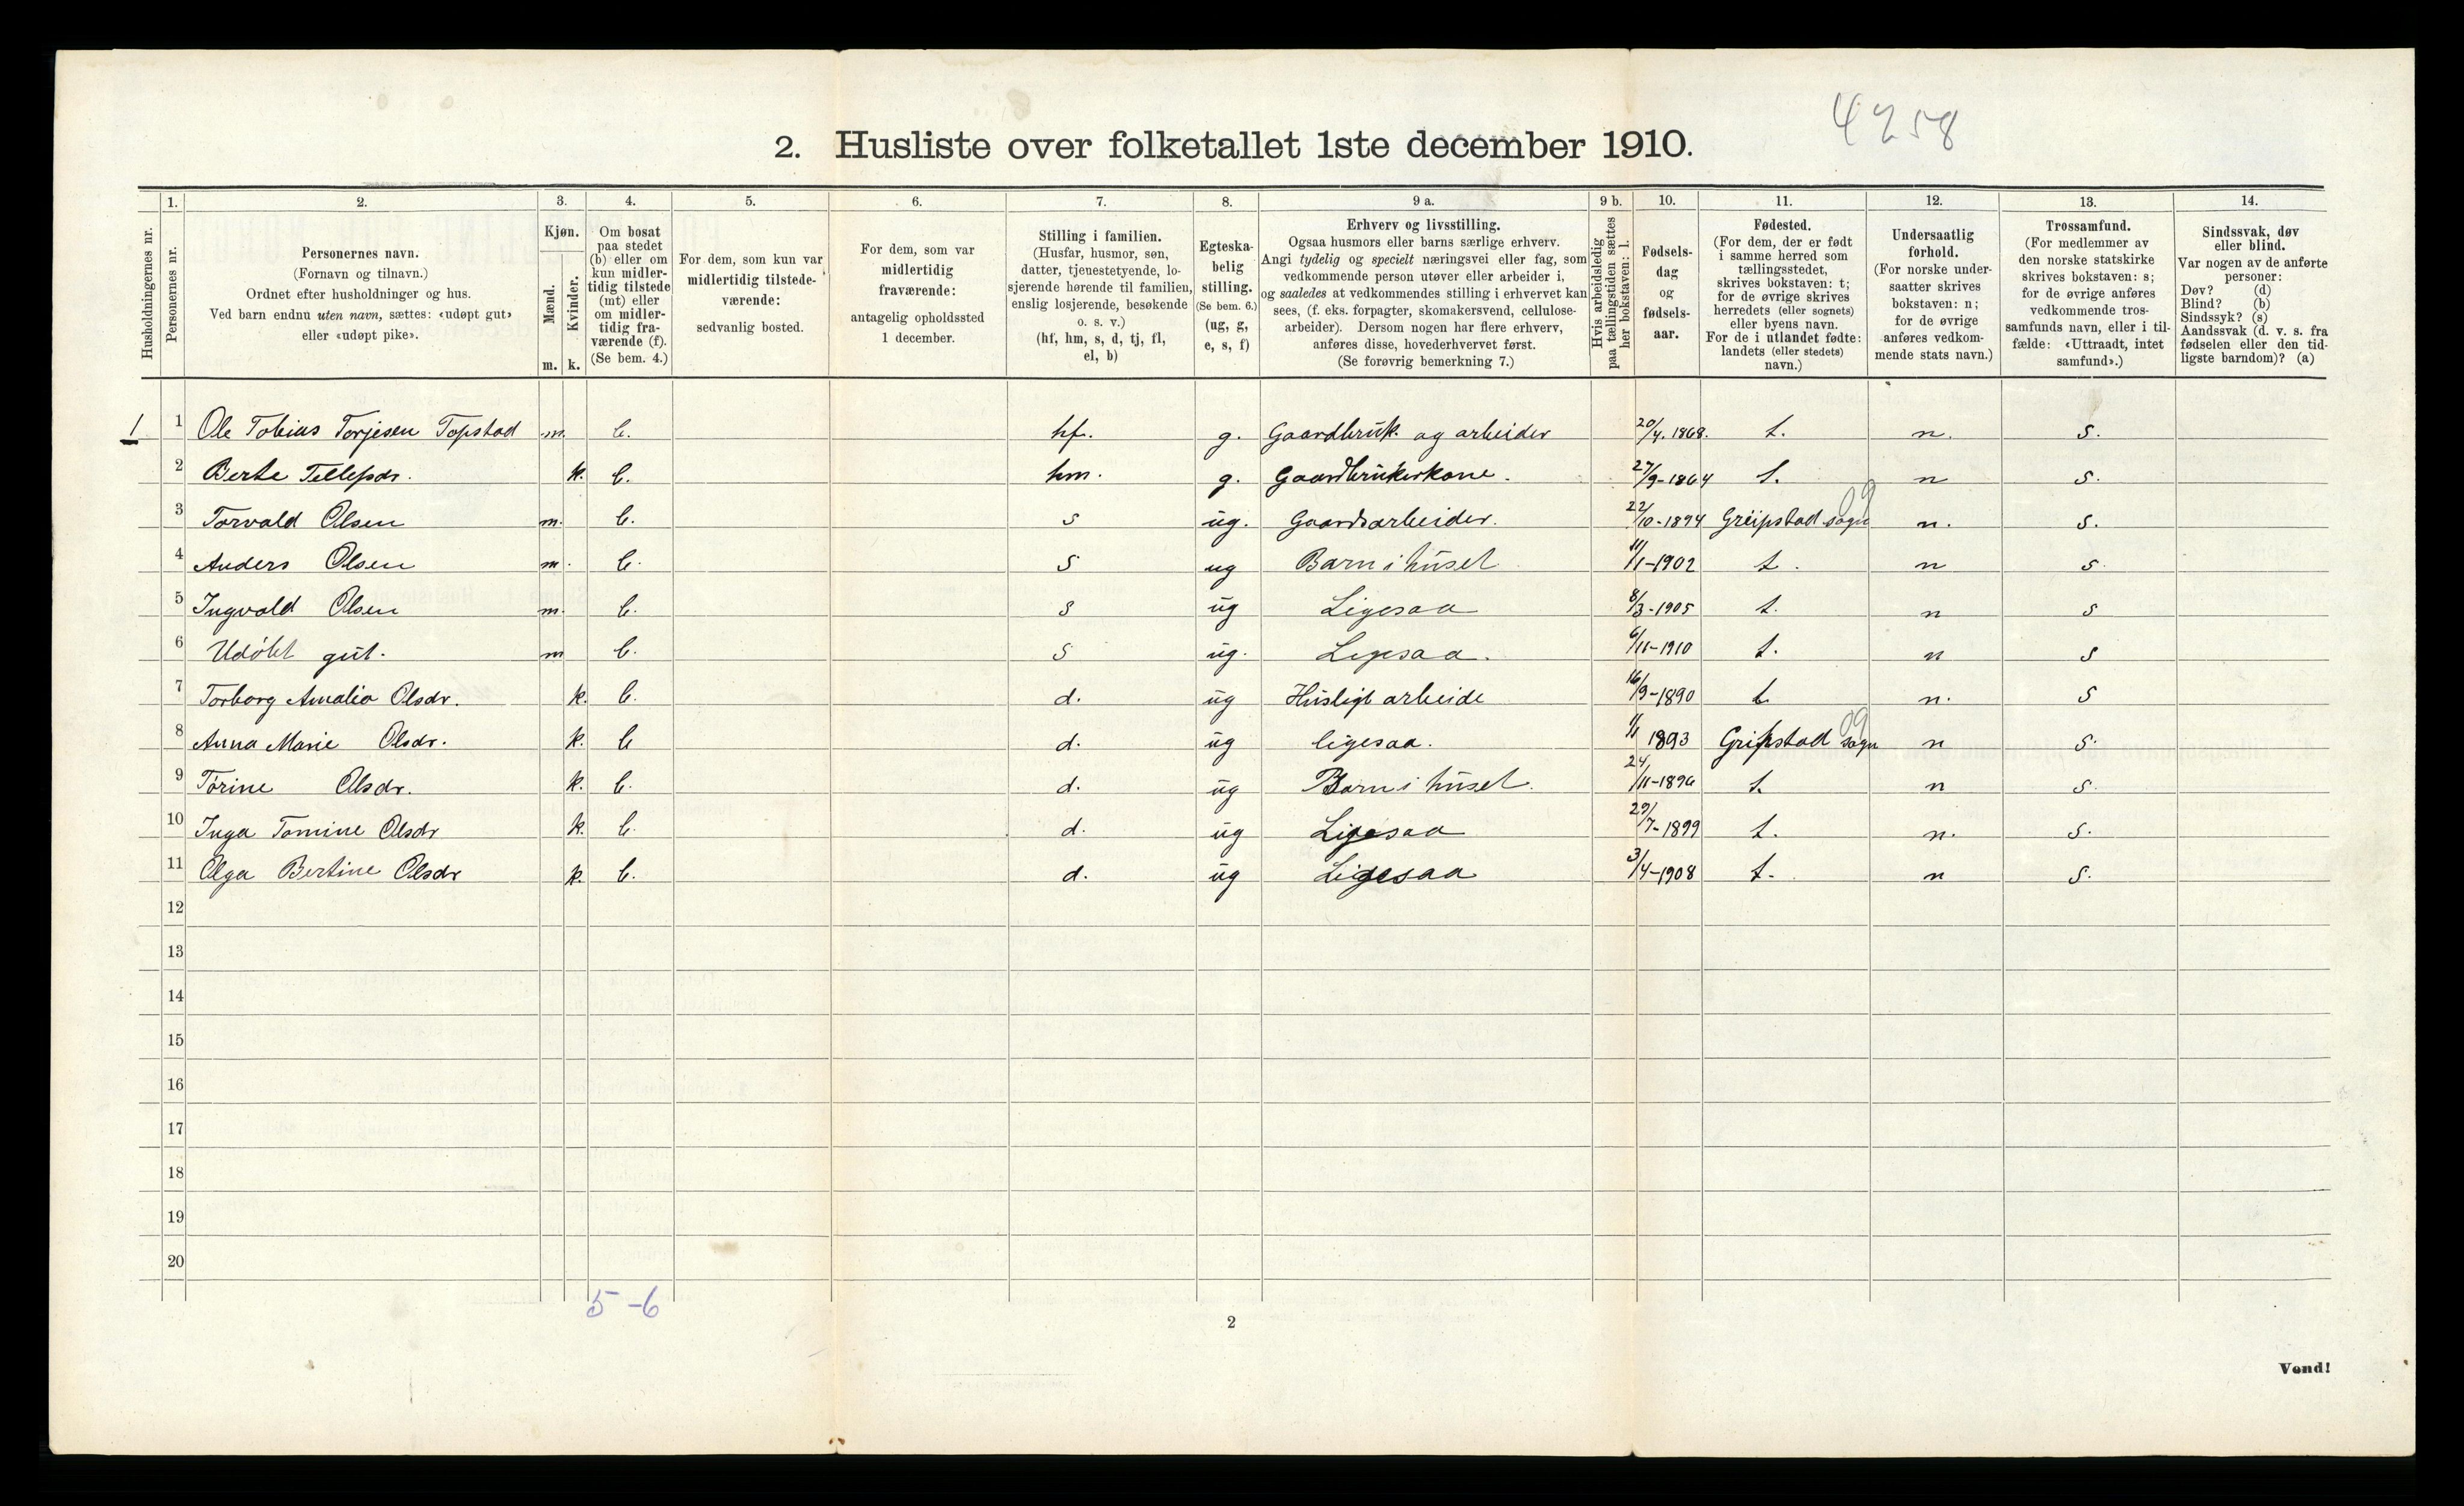 4258
2. Husliste over folketallet 1ste december 1910.
Husholdningernes nr.
1.
Personernes nr.
2.
Personernes navn.
(Fornavn og tilnavn.)
Ordnet efter husholdninger og hus.
Ved barn endnu uten navn, sættes: «udøpt gut»
eller «udøpt pike».
3.
Kjøn.
Mænd.
Kvinder.
m. k.
4.
Om bosat
paa stedet
(b) eller om
kun midler-
tidig tilstede
(mt) eller
om midler-
tidig fra-
værende (f).
(Se bem. 4.)
5.
For dem, som kun var
midlertidig tilstede-
værende:
sedvanlig bosted.
6.
For dem, som var
midlertidig
fraværende:
antagelig opholdssted
1 december.
7.
Stilling i familien.
(Husfar, husmor, søn,
datter, tjenestetyende, lo-
sjerende hørende til familien,
enslig losjerende, besøkende
o. s. v.)
(hf, hm, s, d, tj, fl,
el, b)
8.
Egteska-
belig
stilling.
(Se bem. 6.)
(ug, g,
e, s, f)
9 a.
Erhverv og livsstilling.
Ogsaa husmors eller barns særlige erhverv.
Angi tydelig og specielt næringsvei eller fag, som
vedkommende person utøver eller arbeider i,
og saaledes at vedkommendes stilling i erhvervet kan
sees, (f. eks. forpagter, skomakersvend, cellulose-
arbeider). Dersom nogen har flere erhverv,
anføres disse, hovederhvervet først.
(Se forøvrig bemerkning 7.)
9 b.
Hvis arbeidsledig
paa tællingstiden sættes
her bokstaven: l.
10.
Fødsels-
dag
og
fødsels-
aar.
11.
Fødested.
(For dem, der er født
i samme herred som
tællingsstedet,
skrives bokstaven: t;
for de øvrige skrives
herredets (eller sognets)
eller byens navn.
For de i utlandet fødte:
landets (eller stedets)
navn.)
12.
Undersaatlig
forhold.
(For norske under-
saatter skrives
bokstaven: n;
for de øvrige
anføres vedkom-
mende stats navn.)
13.
Trossamfund.
(For medlemmer av
den norske statskirke
skrives bokstaven: s;
for de øvrige anføres
vedkommende tros-
samfunds navn, eller i til-
fælde: «Uttraadt, intet
samfund».)
14.
Sindssvak, døv
eller blind.
Var nogen av de anførte
personer:
Døv? (d)
Blind? (b)
Sindssyk? (s)
Aandssvak (d. v. s. fra
fødselen eller den tid-
ligste barndom)? (a)
1 1 Ole Tobias Torjesen Topstad m. b. hf. g. Gaardbruk. og arbeider 20/4. 1868. t. n. s.
2 Berte Tellefsdr. k. b. hm. g. Gaardbrukerkone. 27/9-1864 t. n s.
3 Torvald Olsen m. b. s ug. Gaardsarbeider. 22/10-1894 Greipstad sogn 09 n. s.
4 Anders Olsen m. b. s ug Barn i huset 11/1-1902 t. n s.
5 Ingvald Olsen m. b. s ug Ligesaa 8/3-1905 t. n s
6 Udøbt gut. m b. s ug. Ligesaa. 6/11-1910 t. n s
7 Torborg Amalia Olsdr. k. b. d. ug Husligt arbeide 16/9-1890 t. n. s
8 Anna Marie Olsdr. k. b d. ug ligesaa. 1/1 1893 Gripstad sogn 09 n s.
9 Torine Olsdr. k. b. d. ug Barn i huset. 24/11-1896 t. n s.
10 Inga Tomine Olsdr k. b. d. ug Ligesaa 29/7-1899 t. n. s.
11 Olga Bertine Olsdr k. b. d. ug Ligesaa 3/4-1908 t. n s.
12
13
14
15
16
17
18
19
20
5-6
2
Vend!